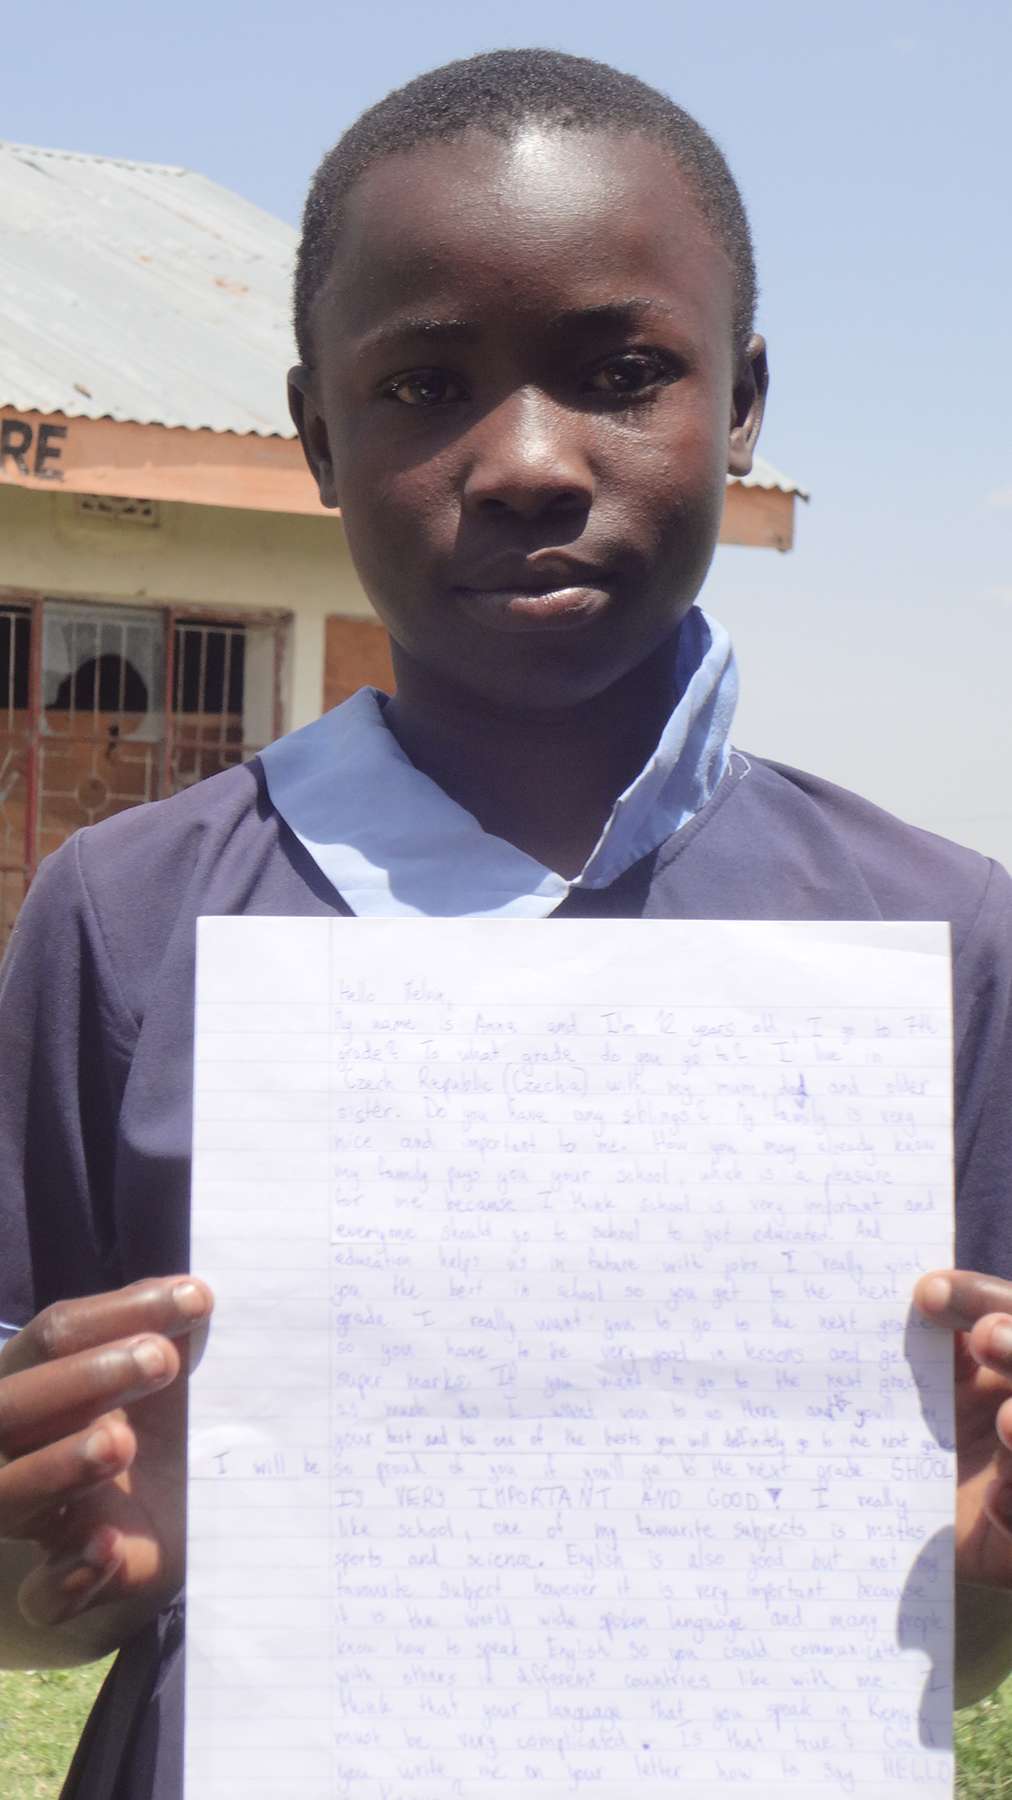 RE
Hello
My name is Anna and I'm 12 years old, I go to 7th
grade? To what grade do you go to? I live in
Czech Republic (Czechia) with my mum, dad and older
sister. Do you have any siblings? My family is very
nice and important to me. How you may already know
my family pays you your school, which is a pleasure
for me because I think school is very important and
everyone should go to school to get educated. And
education helps us in future with jobs. I really wish
you the best in school so you get to the next
grade. I really want you to go to the next grade
so you have to be very good in lessons and get
super marks. If you want to go to the next grade
as much as I want you to go there and you'll
your best and be one of the bests you will definitely go to the next grade
I will be so proud of you if you'll go to the next grade. SHOOL
IS VERY IMPORTANT AND GOOD! I really
like school, one of my favourite subjects is maths
sports and science. English is also good but not my
favourite subject however it is very important because
it is the world wide spoken language and many people
know how to speak English so you could communicate
with others in different countries like with me. I
think that your language that you speak in Kenya
must be very complicated. Is that true? Can
you write me on your letter how to say HELLO